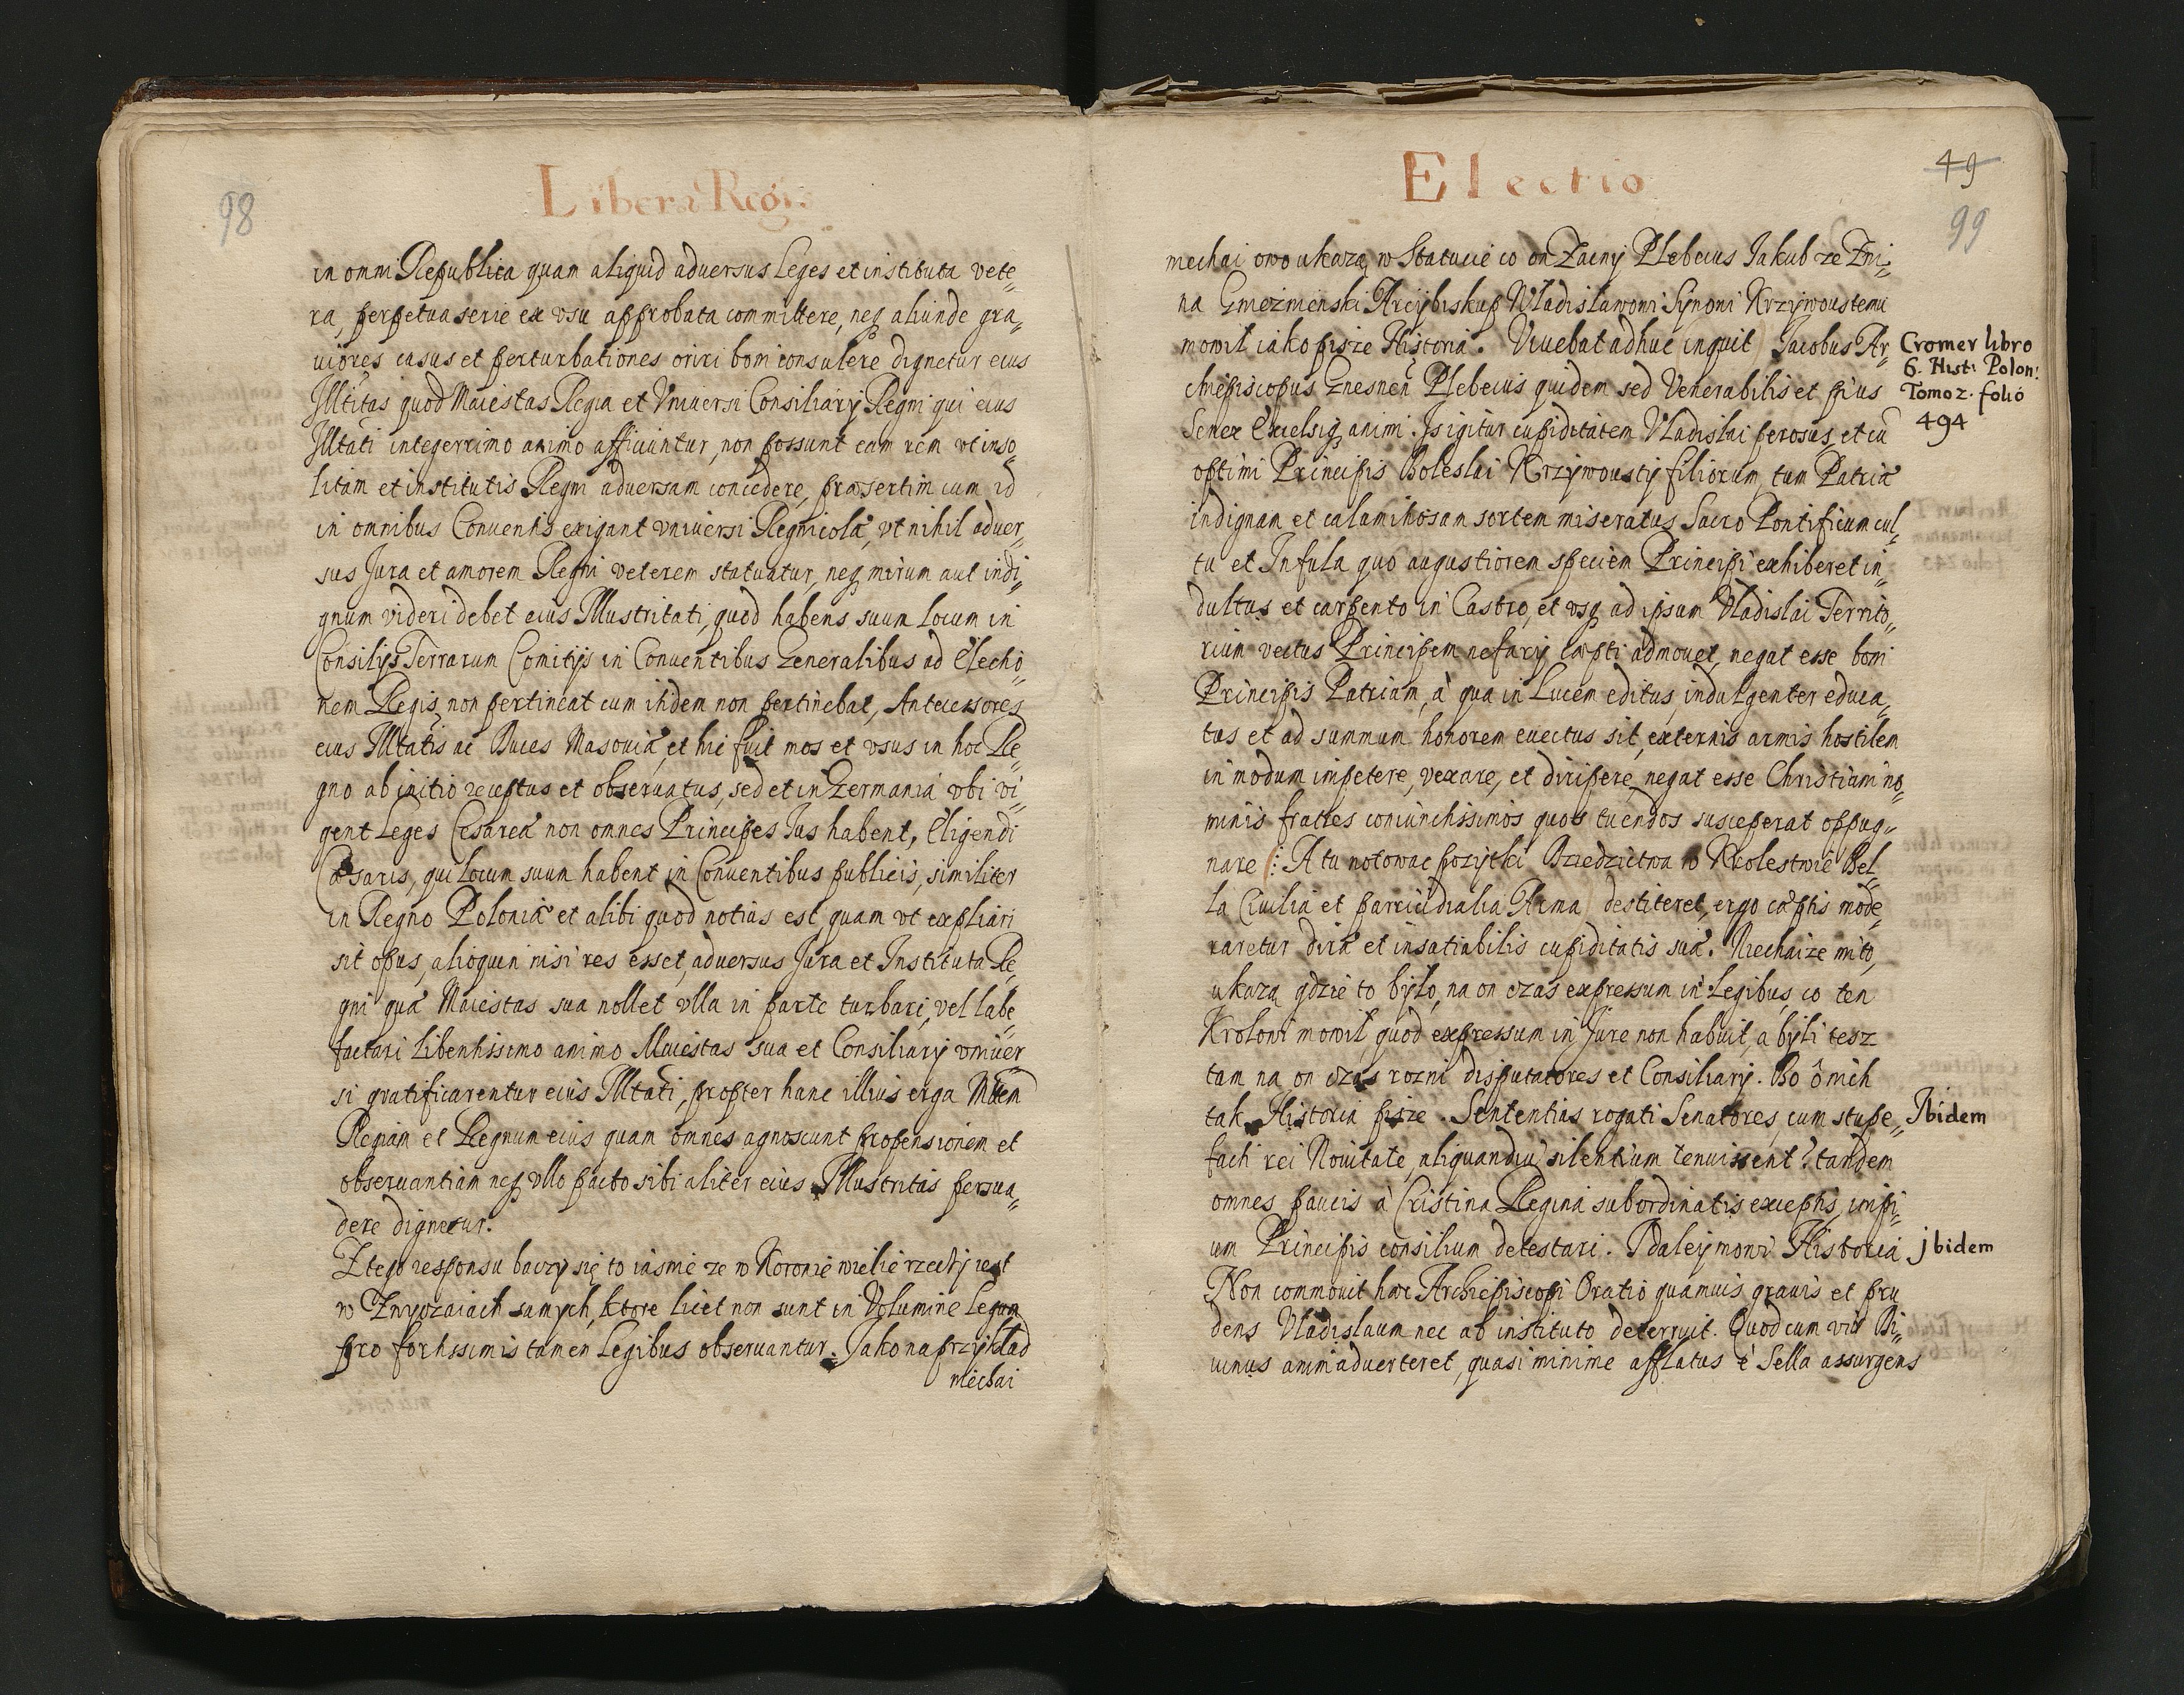 98
Libera Regis
in omni Republica quam aliquid aduersus Leges et instituta vete„
ra, perpetua serie ex vsu approbata committere, neq aliunde gra„
uiores casus et perturbationes oriri boni consulere dignetur eius
Illtitas quod Maiestas Regia et Vniuersi Consiliarij Regni qui eius
Illtati integerrimo animo afficiuntur, non possunt eam rem vt inso„
litam et institutis Regni aduersam concedere, præsertim cum id
in omnibus Conuentis exigant vniuersi Regnicolæ, vt nihil aduer„
sus Jura et amorem Regni veterem statuatur, neq mirum aut indi„
gnum videri debet eius Illustritati, quod habens suum Locum in
Consilijs Terrarum Comitijs in Conuentibus Generalibus ad Electio„
nem Regis non pertineat cum itidem non pertinebat, Antecessores
eius Illtatis ac Duces Masouiæ, et hic fuit mos et vsus in hoc Re„
gno ab initio receptus et obseruatus, sed et in Germania vbi vi„
gent Leges Cesareæ non omnes Principes Jus habent, Eligendi
Cæsaris, qui Locum suum habent in Conuentibus publicis, similiter
in Regno Poloniæ et alibi quod notius est, quam vt expliari
sit opus, alioquin nisi res esset, aduersus Jura et Instituta Re„
gni quæ Maiestas sua nollet vlla in parte turbari, vel labe„
factari libentissimo animo Maiestas sua et Consiliarij vniuer„
si gratificarentur eius Illtati, propter hanc illius erga Mtem
Regiam et Regnum eius quam omnes agnoscunt propensionem et
obseruantiam neq vllo pacto sibi aliter eius Illustritas persua„
dere dignetur.
Z tego responsu baczy się to iasnie ze w Koronie wielie rzeczy iest
w Zwyczaiach samych, ktore licet non sunt in Volumine Legum
pro fortissimis tamen Legibus obseruantur. Jako na przykład
niechai
Electio
49
99
niechai owo ukazą w Statucie co on Zacny Plebeius Jakub ze Zni„
na Gnieznienski Arcybiskup Władisławowi Synowi Krzywoustemu
mowił iako pisze Historia. Viuebat adhuc inquit Jacobus Ar„
chiepiscopus Gnesnen Plebeius quidem sed Venerabilis et pius
Senex Excelsiq animi. Js igitur cupiditatem Vladislai perosus, et cu
optimi Principis Boleslai Krzywoustij filiorum, tum Patriæ
indignam et calamitosam sortem miseratus Sacro Pontificum cul„
tu et Infula quo augustiorem speciem Principi exhiberet in„
dultus et carpento in Castro, et vsq ad ipsum Vladislai Territo„
rium vectus Principem nefarij cæpti admonet, negat esse boni
Principis Patriam, à qua in Lucem editus, indulgenter educa„
tus et ad summum honorem euectus sit, externis armis hostilem
in modum impetere, vexare, et diripere, negat esse Christiani no„
minis fratres coniunctissimos quos tuendos susceperat oppug„
nare /: A tu notowac pozytki Dziedzictwa w Krolestwie Bel„
la Ciuilia et parricidialia Arma destiteret, ergo cæptis mode„
raretur diræ et insatiabilis cupiditatis suæ. Niechaize mi to,
ukazą gdzie to było, na on czas expressum in Legibus, co ten
Krolowi mowił, quod expressum in Jure non habuit, a byli tesz
tam na on czas rozni disputatores et Consiliarij. Bo o nich
tak Historia pisze. Sententias rogati Senatores, cum stupe„
facti rei Nouitate, aliquandiu silentium tenuissent? tandem
omnes paucis à Cristina Regina subordinatis exceptis, impi„
um Principis consilium detestari. J daley mowi Historia
Non commouit hæc Archiepiscopi Oratio quamuis grauis et pru
dens Vladislaum nec ab instituto deterruit. Quod cum vir Di„
uinus animaduerteret, quasi minime afflatus è Sella assurgens
Cromer libro
6. Hist: Polon:
Tomo 2. folio
494
Jbidem
jbidem